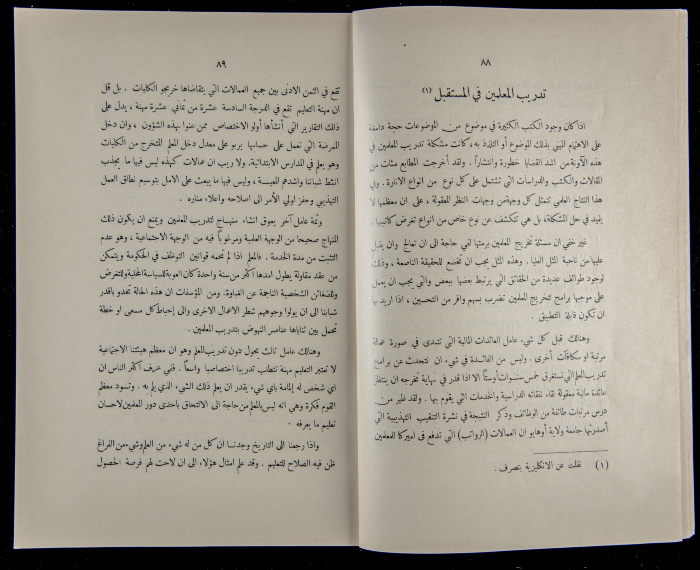 ٨٨
تدريب المعلمين في المستقبل (١)
اذا كان وجود الكتب الكثيرة في موضوع من الموضوعات حجة دامغة
على الاهتمام المهني بذلك الموضوع أو التلذذ به، كانت مشكلة تدريب المعلمين في
هذه الآونة من اشد القضايا خطورة وانتشاراً. ولقد أخرجت المطابع مئات من
المقالات والكتب والدراسات التي تشتمل على كل نوع من انواع الانارة. وفي
هذا النتاج العلمي تتمثل كل وجهة من وجهات النظر المعقولة، على ان معظمها لا
يفيد في حل المشكلة، بل هي تتكشف عن نوع خاص من انواع تغرض كاتبيها.
غير خفي ان مسئلة تخريج المعلمين برمتها لهي حاجة الى ان تعالج وان يقبل
عليها من ناحية المثل العليا. وهذه المثل يجب ان تخضع للحقيقة الناصعة، وذلك
لوجود طوائف عديدة من الحقائق التي يرتبط بعضها ببعض والتي يجب ان يعمل
على موجبها برامج لتخريج المعلمين تضرب بسهم وافر من التحسين، اذا اريد بها
ان تكون قابلة التطبيق.
وهنالك قبل كل شيء، عامل العائدات المالية التي تتبدى في صورة عمالة
مرتبة او مكافآت أخرى. وليس من الفائدة في شيء ان نتحدث عن برامج
تدريب للمعلم التي تستغرق خمس سنوات أو ستاً الا اذا قدر في نهاية تخرجه ان ينتظر
عائدة مالية معقولة لقاء نفقاته الدراسية والخدمات التي يقوم بها. ولقد ظهر من
درس مرتبات طائفة من الوظائف وذكر النتيجة في نشرة التنقيب التهذيبية التي
أصدرتها جامعة ولاية أوهايو ان العمالات (الرواتب) التي تدفع في اميركا للمعلمين
(١) نقلت عن الانكليزية بتصرف.
٨٩
تقع في الثمن الادنى بين جميع العمالات التي يتقاضاها خريجو الكليات. بل قل
ان مهنة التعليم تقع في الدرجة السادسة عشرة من ثماني عشرة مهنة، يدل على
ذلك التقارير التي أنشأها أولو الاختصاص ممن عنوا بهذه الشؤون، وان دخل
الممرضة التي تعمل على حسابها يربو على معدل دخل المعلم المتخرج من الكليات
وهو يعلم في المدارس الابتدائية. ولا ريب ان عمالات كهذه ليس فيها ما يجذب
انشط شباننا واشدهم ألمعية، وليس فيها ما يبعث على الامل بتوسيع نطاق العمل
التهذيبي وحفز اولي الأمر الى اصلاحه واعلاء مناره.
وثمة عامل آخر يعوق انشاء منهاج لتدريب المعلمين ويمنع ان يكون ذلك
المنهاج صحيحا من الوجهة العلمية ومرغوباً فيه من الوجهة الاجتماعية، وهو عدم
التثبت من مدة الخدمة. فالمعلم اذا لم تحمه قوانين التوظف في الحكومة ويتمكن
من عقد مقاولة يطول امدها اكثر من سنة واحدة كان العوبة للسياسة المحلية وللتغرض
وللضغائن الشخصية الناجمة عن الغباوة. ومن المؤسفات ان هذه الحالة تحدو باقدر
شباننا الى ان يولوا وجوههم شطر الاعمال الاخرى والى إحباط كل مسعى او خطة
تحمل بين ثناياها عناصر النهوض بتدريب المعلمين.
وهنالك عامل ثالث يحول دون تدريب المعلم وهو ان معظم هيئتنا الاجتماعية
لا تعتبر التعليم مهنة تتطلب تدريبا اختصاصيا واسعاً. ففي عرف اكثر الناس ان
اي شخص له إلمامة باي شيء يقدر ان يعلم ذلك الشيء الذي يلم به. وتسود معظم
القوم فكرة وهي انه ليس بالمعلم من حاجة الى الالتحاق باحدى دور المعلمين لاحسان
تعليم ما يعرفه.
واذا رجعنا الى التاريخ وجدنا ان كل من له شيء من العلم وشيء من الفراغ
ظن فيه الصلاح للتعليم. وقد علم امثال هؤلاء الى ان لاحت لهم فرصة الحصول